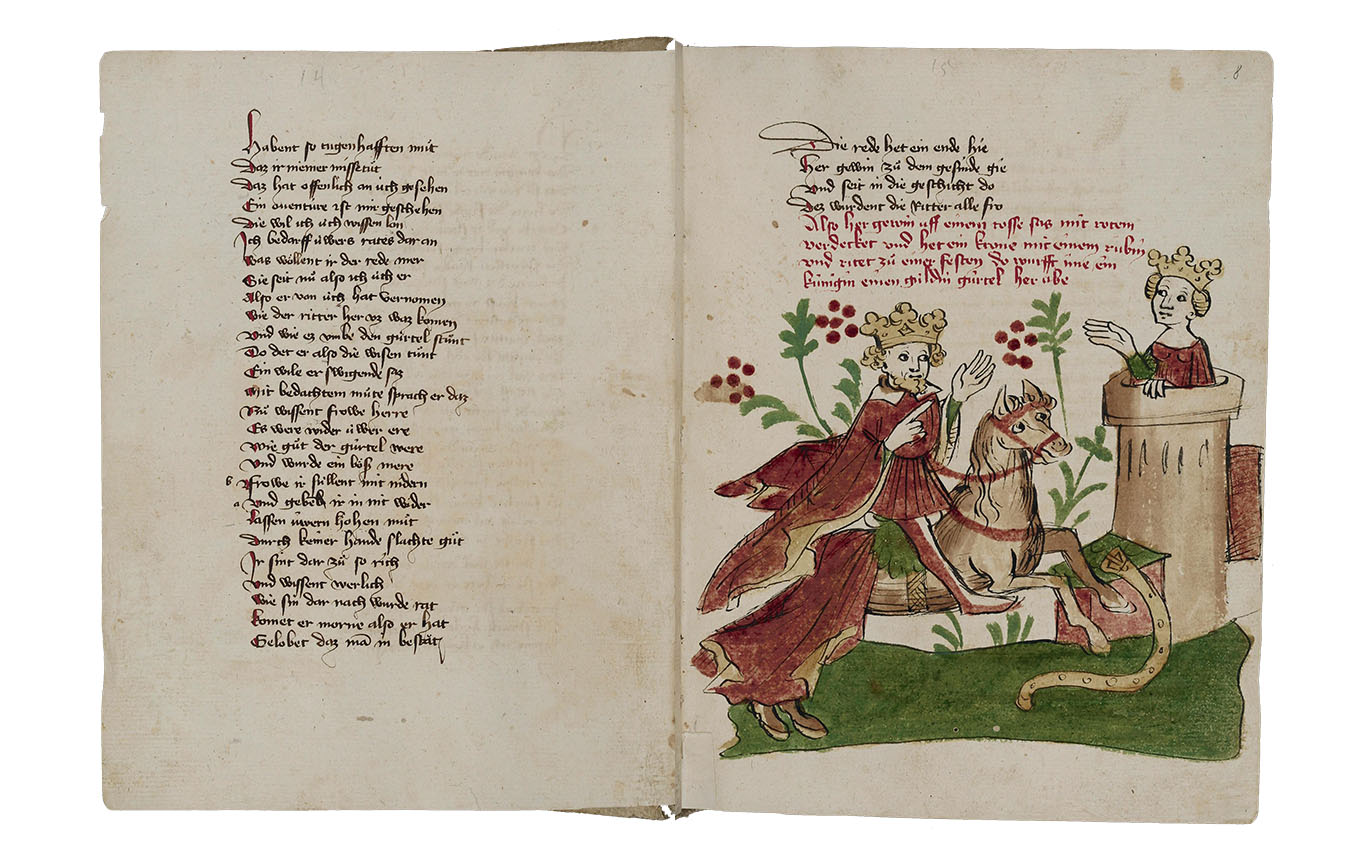 14
Habent so tugenhafften můt
Daz ir meiner missetůt
Daz hat offenlich an úch gesehen
Ein ouentúre ist mir geschehen
Die wil ich úch wissen lon
Ich bedarff úwers rates dar an
Was wöllent ir der rede mer
Sie seit nů also ich úch er
Also er von úch hat vernomen
Wie der ritter her vz waz komen
Vnd wie ez vmbe den gúrtel stůnt
Do det er also die wisen tůnt
Ein wile er swigende saz
Mit bedachtem můte sprach er daz
Nů wissent frowe herre
Es were wider úwer ere
Wie gůt der gúrtel were
Vnd wurde ein böß mere
b Frowe ir súllent mit nidern
a Vnd gebent ir in nit wider
Lassen úwern hohen můt
Durch keiner hande slachte gůt
Ir sint dar zů so rich
Vnd wissent werlich
Wie sin dar nach wurde rat
Komet er morne also er hat
Gelobet daz mā in bestat
15
8
Die rede het ein ende hie
Her gewin zů dem gesinde gie
Vnd seit in die geschicht do
Dez wurdent die Ritter alle fro
Also her gewin vff einem rosse sas mit rotem
verdecket vnd het ein krone mit einem rubin
vnd ritet zů einer festen do wurfft ime ein
kúnigin einen gildin gúrtel her abe